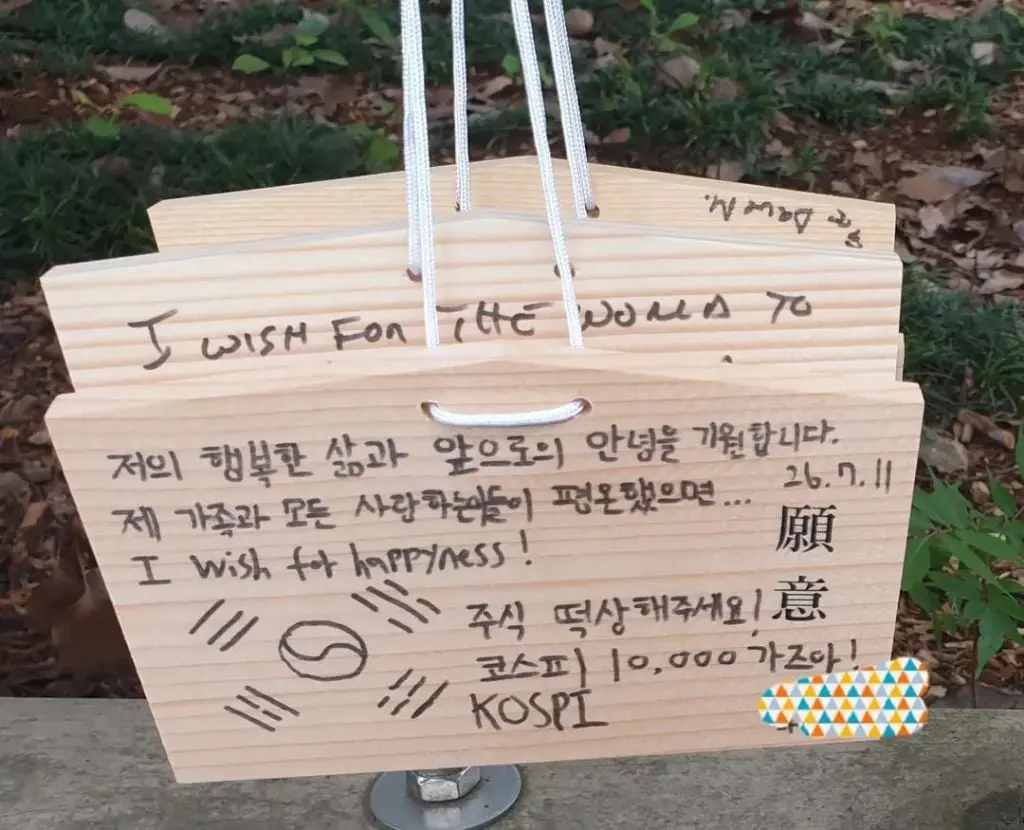 Dave M.
I WISH FOR THE WORLD TO
저의 행복한 삶과 앞으로의 안녕을 기원합니다.
26.7.11
제 가족과 모든 사랑하는이들이 평온했으면...
I wish for happyness!
願
意
주식 떡상해주세요!
코스피 10,000 가즈아!
KOSPI